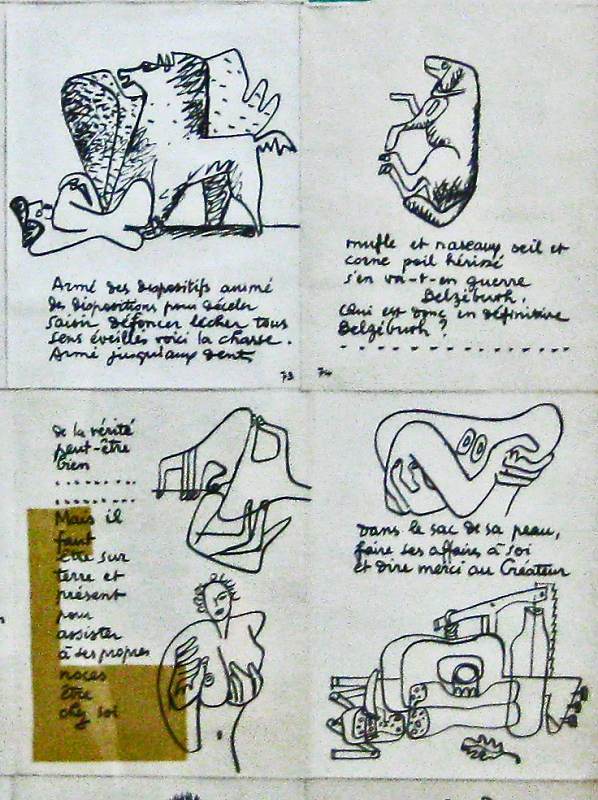 Armé des dispositifs animé
des dispositions pour déceler
saisir défoncer lécher tous
sens éveillés voici la chasse.
Armé jusqu'aux dents
73
mufle et naseaux oeil et
corne poil hérissé
s'en va-t-en guerre
Belzébuth.
Qui est donc en définitive
Belzébuth ?
74
de la vérité
peut-être
bien
Mais il
faut
être sur
terre et
présent
pour
assister
à ses propres
noces
être
chez soi
Dans le sac de sa peau,
faire ses affaires à soi
et dire merci au Créateur